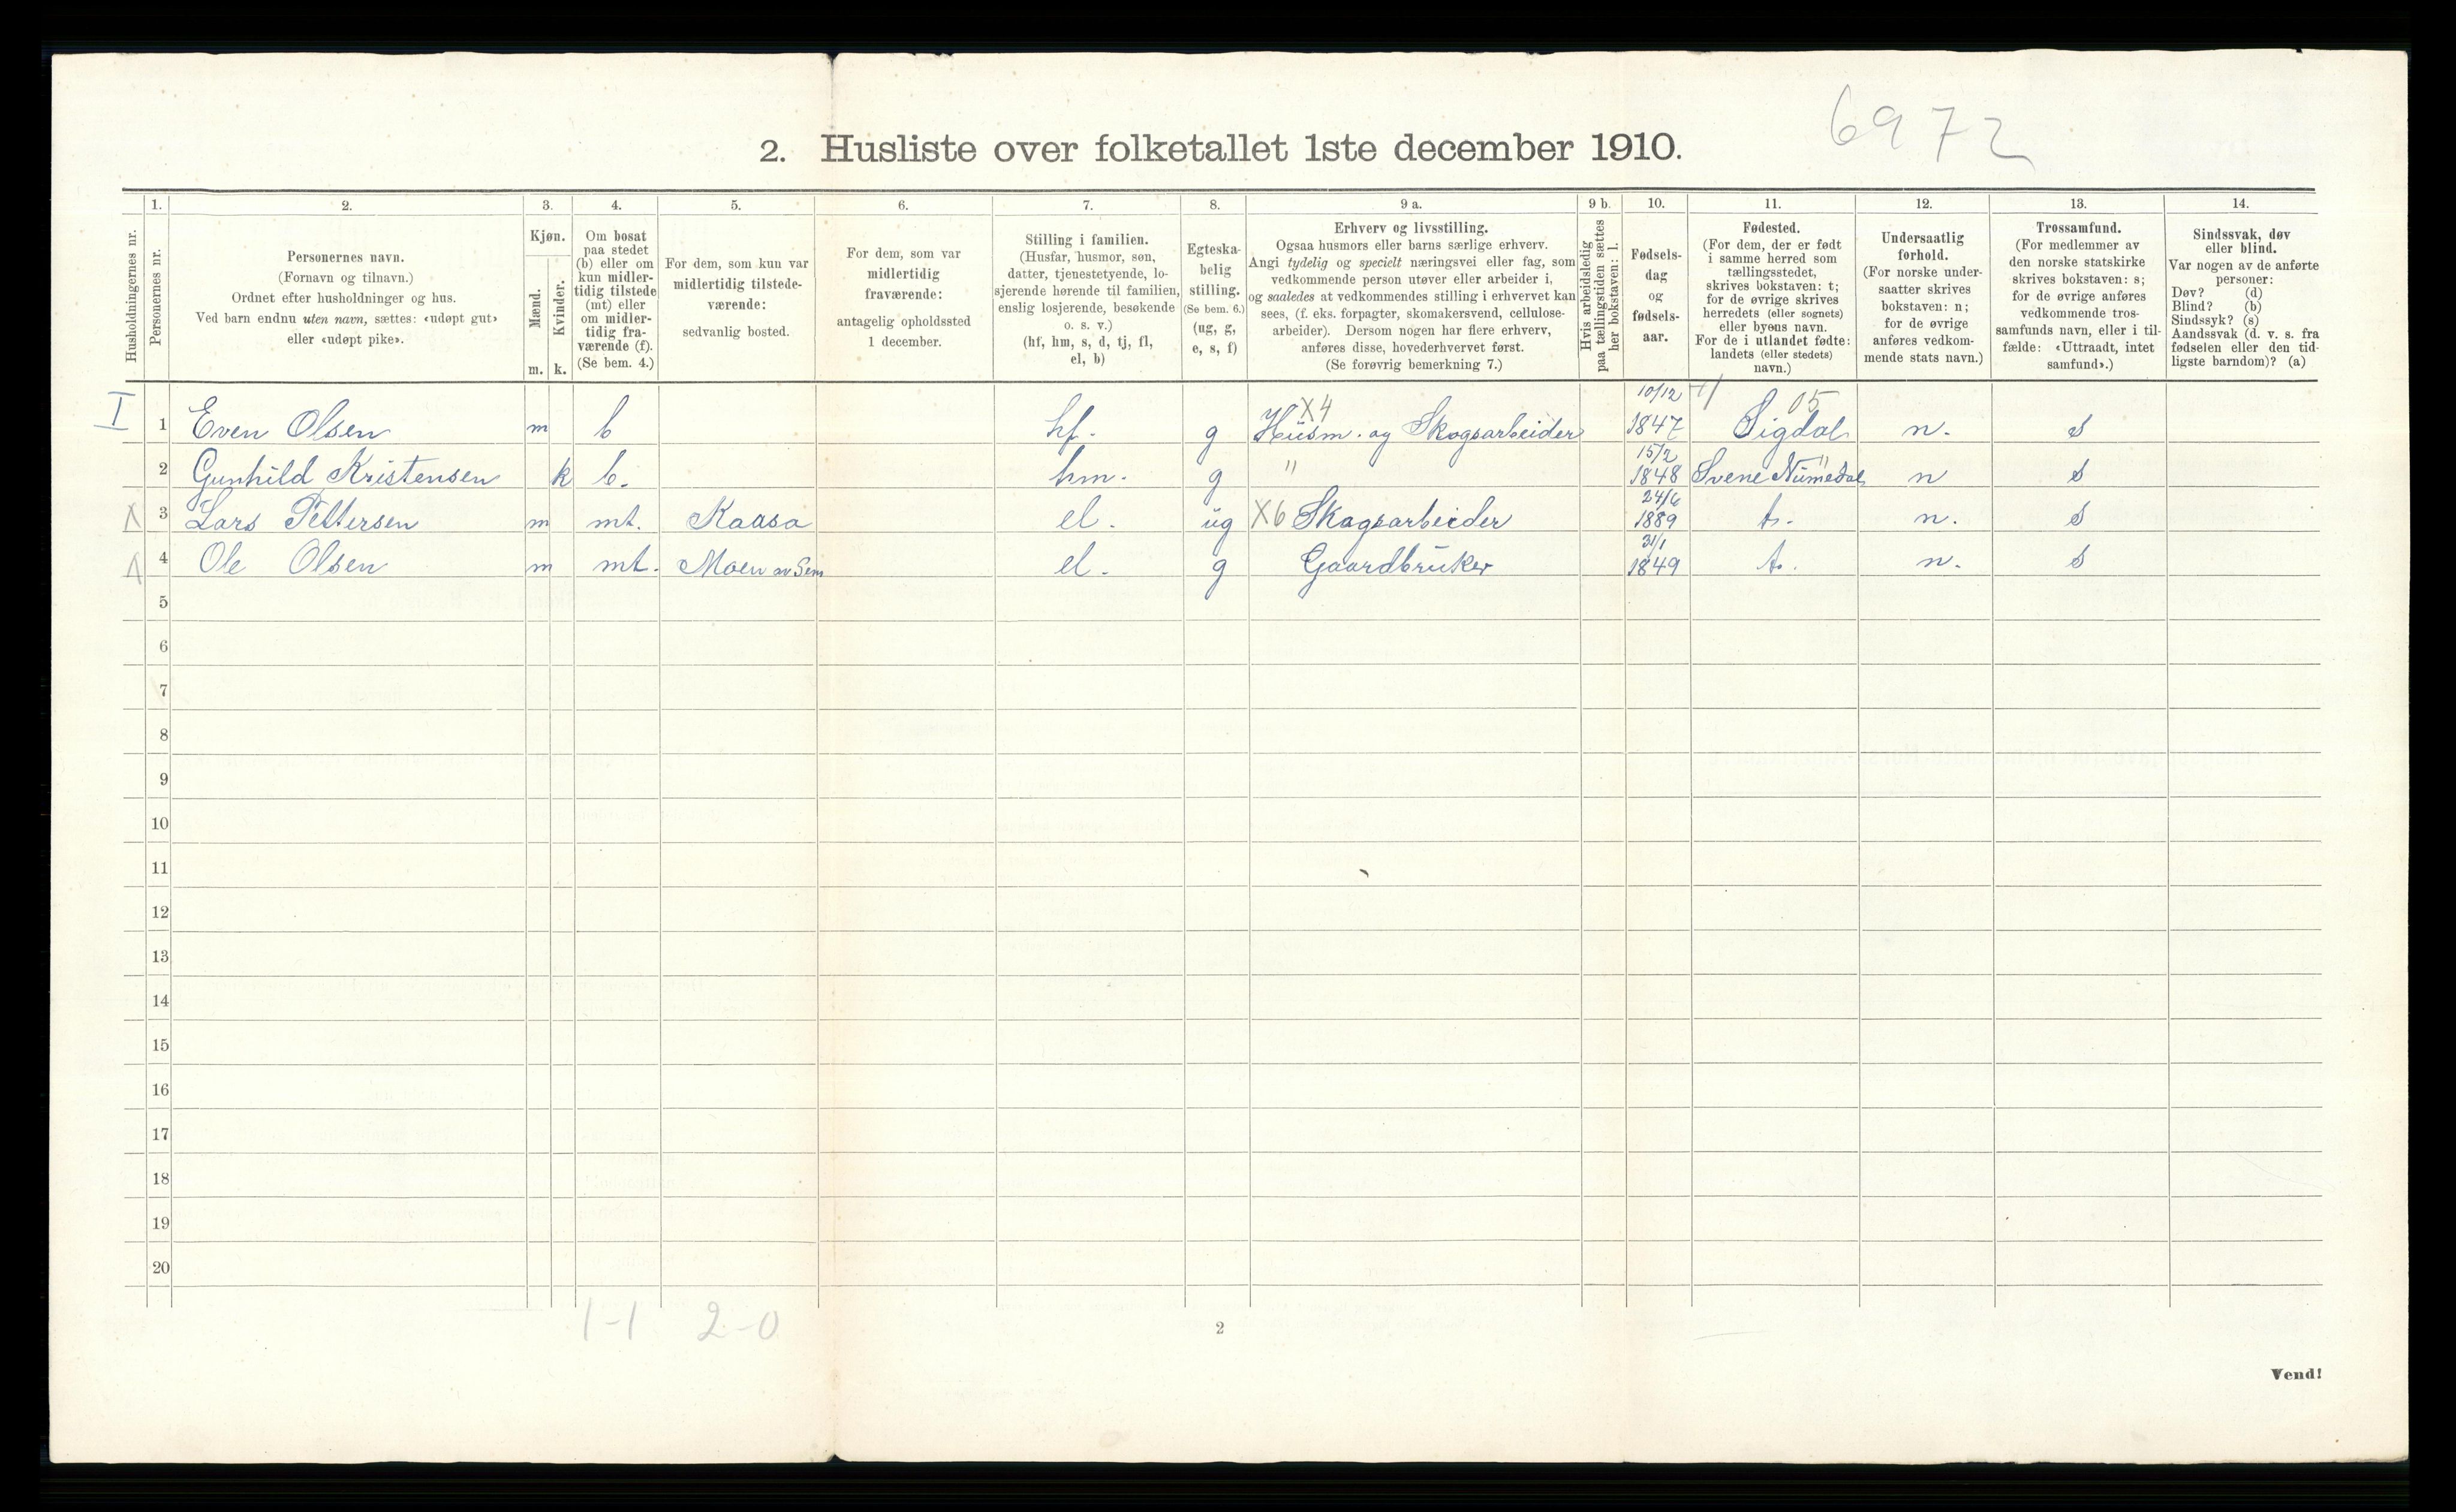 6972
2. Husliste over folketallet 1ste december 1910.
1. 2. 3. 4. 5. 6. 7. 8. 9 a. 9 b. 10. 11. 12. 13. 14.
Husholdningernes nr.
Personernes nr.
Personernes navn.
(Fornavn og tilnavn.)
Ordnet efter husholdninger og hus.
Ved barn endnu uten navn, sættes: «udøpt gut»
eller «udøpt pike».
Kjøn.
Mænd.
Kvinder.
m. k.
Om bosat
paa stedet
(b) eller om
kun midler-
tidig tilstede
(mt) eller
om midler-
tidig fra-
værende (f).
(Se bem. 4.)
For dem, som kun var
midlertidig tilstede-
værende:
sedvanlig bosted.
For dem, som var
midlertidig
fraværende:
antagelig opholdssted
1 december.
Stilling i familien.
(Husfar, husmor, søn,
datter, tjenestetyende, lo-
sjerende hørende til familien,
enslig losjerende, besøkende
o. s. v.)
(hf, hm, s, d, tj, fl,
el, b)
Egteska-
belig
stilling.
(Se bem. 6.)
(ug, g,
e, s, f)
Erhverv og livsstilling.
Ogsaa husmors eller barns særlige erhverv.
Angi tydelig og specielt næringsvei eller fag, som
vedkommende person utøver eller arbeider i,
og saaledes at vedkommendes stilling i erhvervet kan
sees, (f. eks. forpagter, skomakersvend, cellulose-
arbeider). Dersom nogen har flere erhverv,
anføres disse, hovederhvervet først.
(Se forøvrig bemerkning 7.)
Hvis arbeidsledig
paa tællingstiden sættes
her bokstaven: l.
Fødsels-
dag
og
fødsels-
aar.
Fødested.
(For dem, der er født
i samme herred som
tællingsstedet,
skrives bokstaven: t;
for de øvrige skrives
herredets (eller sognets)
eller byens navn.
For de i utlandet fødte:
landets (eller stedets)
navn.)
Undersaatlig
forhold.
(For norske under-
saatter skrives
bokstaven: n;
for de øvrige
anføres vedkom-
mende stats navn.)
Trossamfund.
(For medlemmer av
den norske statskirke
skrives bokstaven: s;
for de øvrige anføres
vedkommende tros-
samfunds navn, eller i til-
fælde: «Uttraadt, intet
samfund».)
Sindssvak, døv
eller blind.
Var nogen av de anførte
personer:
Døv? (d)
Blind? (b)
Sindssyk? (s)
Aandssvak (d. v. s. fra
fødselen eller den tid-
ligste barndom)? (a)
X4 10/12 05
I 1 Even Olsen m b hf. g Husm. og Skogsarbeider 1847 Sigdal n. s
15/2
2 Gunhild Kristensen k b. hm. g " 1848 Svene Numedal n s
24/6
X 3 Lars Pettersen m mt. Kaasa el. ug X6 Skogsarbeider 1889 t. n. s
31/1
X 4 Ole Olsen m mt. Moen av Sem el. g Gaardbruker 1849 t. n. s
5
6
7
8
9
10
11
12
13
14
15
16
17
18
19
20
1-1 2-0
2
Vend!